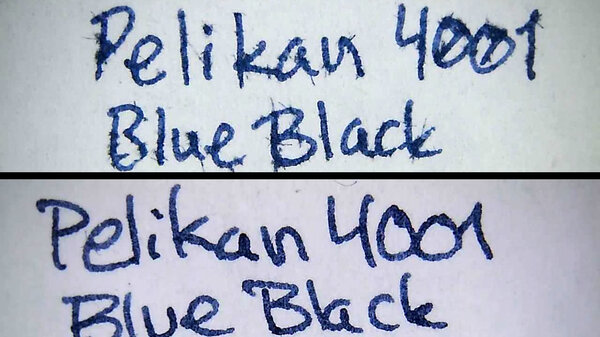 Pelikan 4001
Blue Black
Pelikan 4001
Blue Black